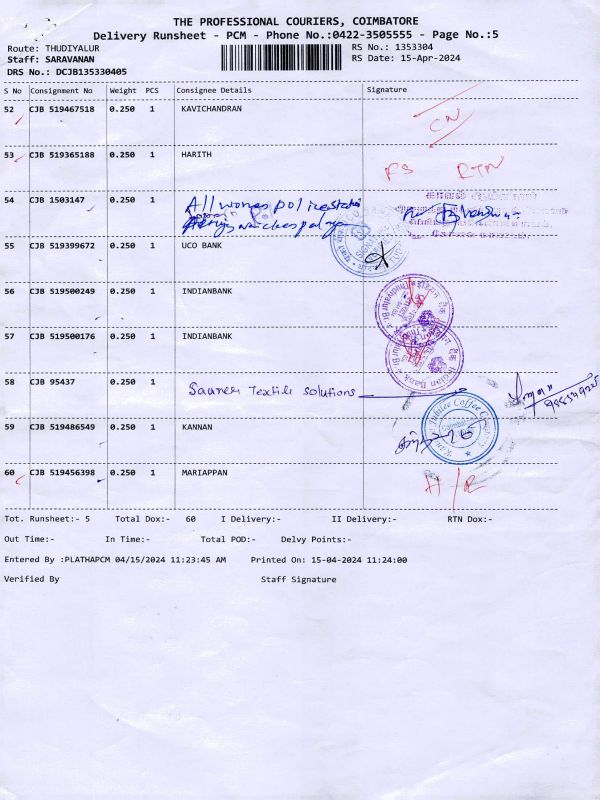 THE PROFESSIONAL COURIERS, COIMBATORE
Delivery Runsheet - PCM - Phone No.:0422-3505555 - Page No.:5
Route: THUDIYALUR
RS No.: 1353304
Staff: SARAVANAN
RS Date: 15-Apr-2024
DRS No.: DCJB135330405
S No Consignment No Weight PCS Consignee Details Signature
52 CJB 519467518 0.250 1 KAVICHANDRAN CN
53 CJB 519365188 0.250 1 HARITH RS RTN
54 CJB 1503147 0.250 1 All women police station
55 CJB 519399672 0.250 1 UCO BANK
56 CJB 519500249 0.250 1 INDIANBANK
57 CJB 519500176 0.250 1 INDIANBANK
Indian Bank
58 CJB 95437 0.250 1 Textile solutions
59 CJB 519486549 0.250 1 KANNAN
Jubilee Coffee Company
60 CJB 519456398 0.250 1 MARIAPPAN H/R
Tot. Runsheet:- 5 Total Dox:- 60 I Delivery:- II Delivery:- RTN Dox:-
Out Time:- In Time:- Total POD:- Delvy Points:-
Entered By :PLATHAPCM 04/15/2024 11:23:45 AM Printed On: 15-04-2024 11:24:00
Verified By Staff Signature